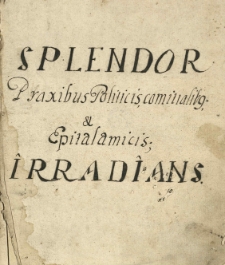 SPLENDOR
Praxibus Politicis, comitialibq;
&
Epitalamicis;
ÎRRADÎANS.